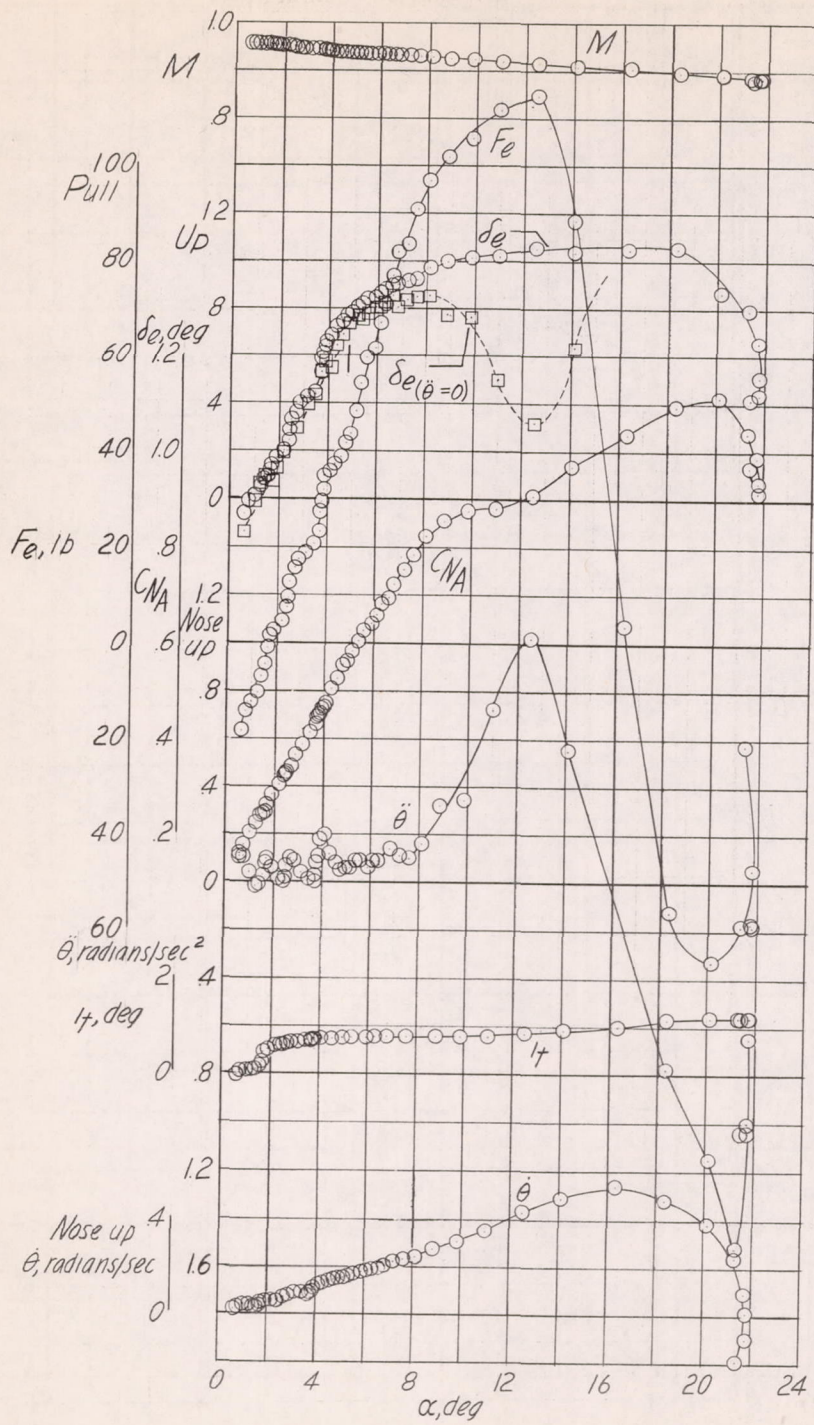 1.0
M
M
.8
Fe
100
Pull
12
Up
δe
80
8
δe, deg
60
1.2
δe(θ̈=0)
4
40
1.0
0
Fe, lb
20
.8
CNA
CNA
1.2
Nose
up
0
.6
.8
20
.4
.4
θ̈
40
.2
0
60
θ̈, radians/sec²
2
.4
it, deg
it
0
.8
1.2
θ̇
Nose up
.4
θ̇, radians/sec
1.6
0
0
4
8
12
16
20
24
α, deg